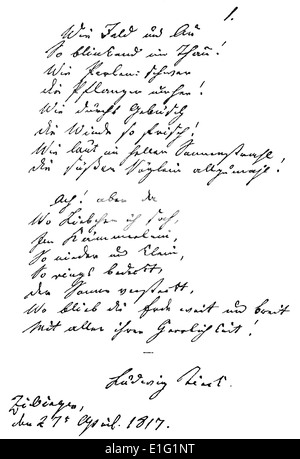 1.
Wie Feld und Au
So blinkend im Thau!
Wie Perlenschwer
die Pflanzen umher!
Wie durchs Gebüsch
die Winde so frisch!
Wie laut im hellen Sonnenstrahl
die süßen Vöglein allzumahl!
Ach! aber da
Wo Liebchen ich sah,
Im Kämmerlein,
So nieder und klein,
So rings bedeckt,
der Sonne versteckt,
Wo blieb die Erde weit und breit
Mit aller ihrer Herrlichkeit!
Ludwig Tieck.
Zibingen,
den 27t April. 1817.
E1G1NT